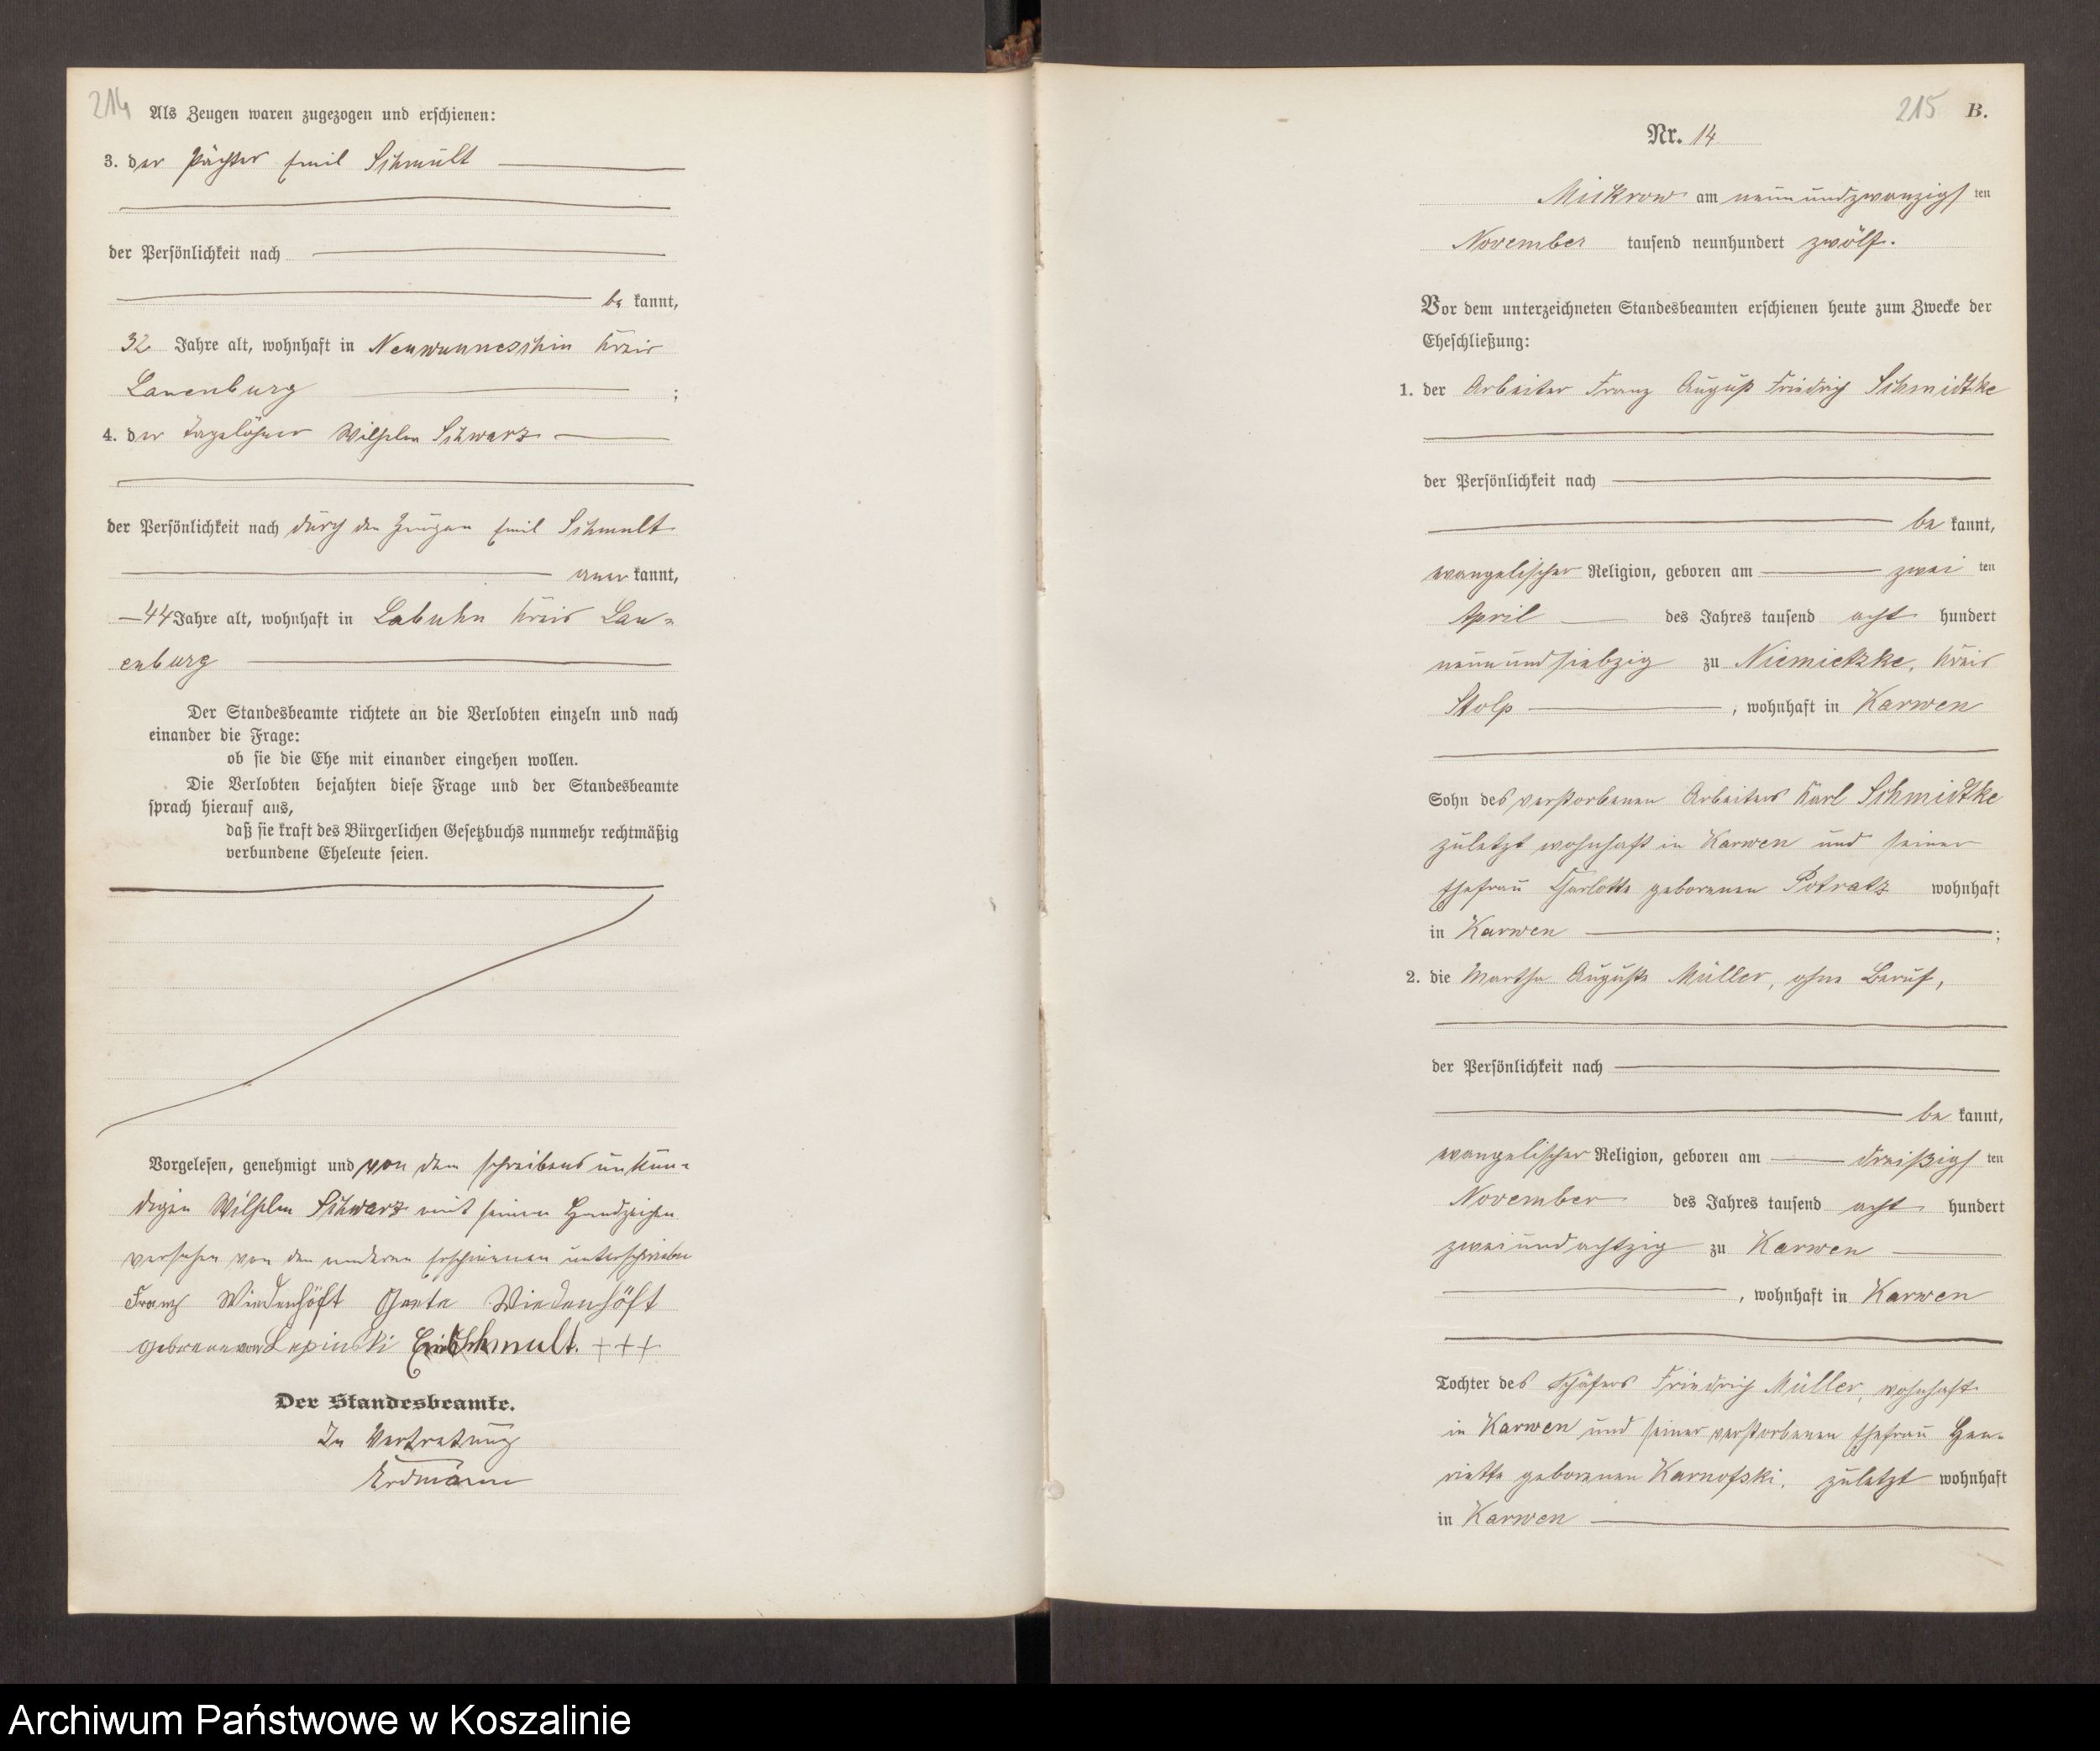 214
Als Zeugen waren zugezogen und erschienen:
3. der Pächter Emil Schmult
der Persönlichkeit nach
be kannt,
32 Jahre alt, wohnhaft in Neuwunneschin Kreis
Lauenburg ;
4. der Tagelöhner Wilhelm Schwarz
der Persönlichkeit nach durch den Zeugen Emil Schmult
aner kannt,
44 Jahre alt, wohnhaft in Labuhn Kreis Lau-
enburg
Der Standesbeamte richtete an die Verlobten einzeln und nach
einander die Frage:
ob sie die Ehe mit einander eingehen wollen.
Die Verlobten bejahten diese Frage und der Standesbeamte
sprach hierauf aus,
daß sie kraft des Bürgerlichen Gesetzbuchs nunmehr rechtmäßig
verbundene Eheleute seien.
Vorgelesen, genehmigt und von dem schreibens unkun-
digen Wilhelm Schwarz mit seinem Handzeichen
versehen von den anderen Erschienenen unterschrieben
Franz Wiedenhöft Wiedenhöft
geborene von Lepinski Emil Schmult. +++
Der Standesbeamte.
In Vertretung
Erdmann
215 B.
Nr. 14
Mickrow am neunundzwanzigsten
November tausend neunhundert zwölf.
Vor dem unterzeichneten Standesbeamten erschienen heute zum Zwecke der
Eheschließung:
1. der Arbeiter Franz August Friedrich Schmidtke
der Persönlichkeit nach
be kannt,
evangelischer Religion, geboren am zwei ten
April des Jahres tausend acht hundert
neunundsiebzig zu Niemietzke, Kreis
Stolp , wohnhaft in Karwen
Sohn des verstorbenen Arbeiters Karl Schmidtke
zuletzt wohnhaft in Karwen und seiner
Ehefrau Charlotte geborenen Potratz wohnhaft
in Karwen ;
2. die Martha Auguste Müller, ohne Beruf,
der Persönlichkeit nach
be kannt,
evangelischer Religion, geboren am dreißigsten
November des Jahres tausend acht hundert
zweiundachtzig zu Karwen
, wohnhaft in Karwen
Tochter des Schäfers Friedrich Müller, wohnhaft
in Karwen und seiner verstorbenen Ehefrau Hen-
riette geborenen Karnofski, zuletzt wohnhaft
in Karwen
Archiwum Państwowe w Koszalinie